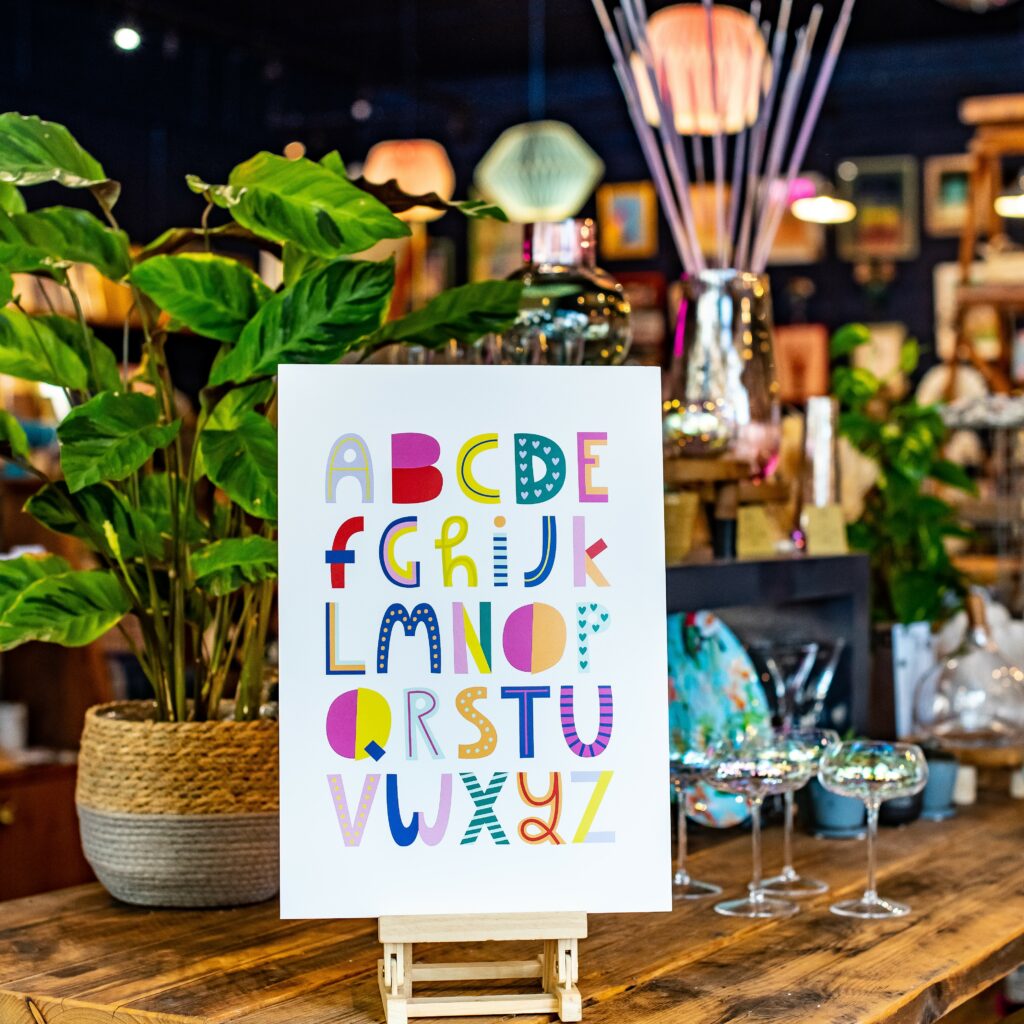 ABCDE
fGhiJk
LMNOP
QRSTU
VWXYZ